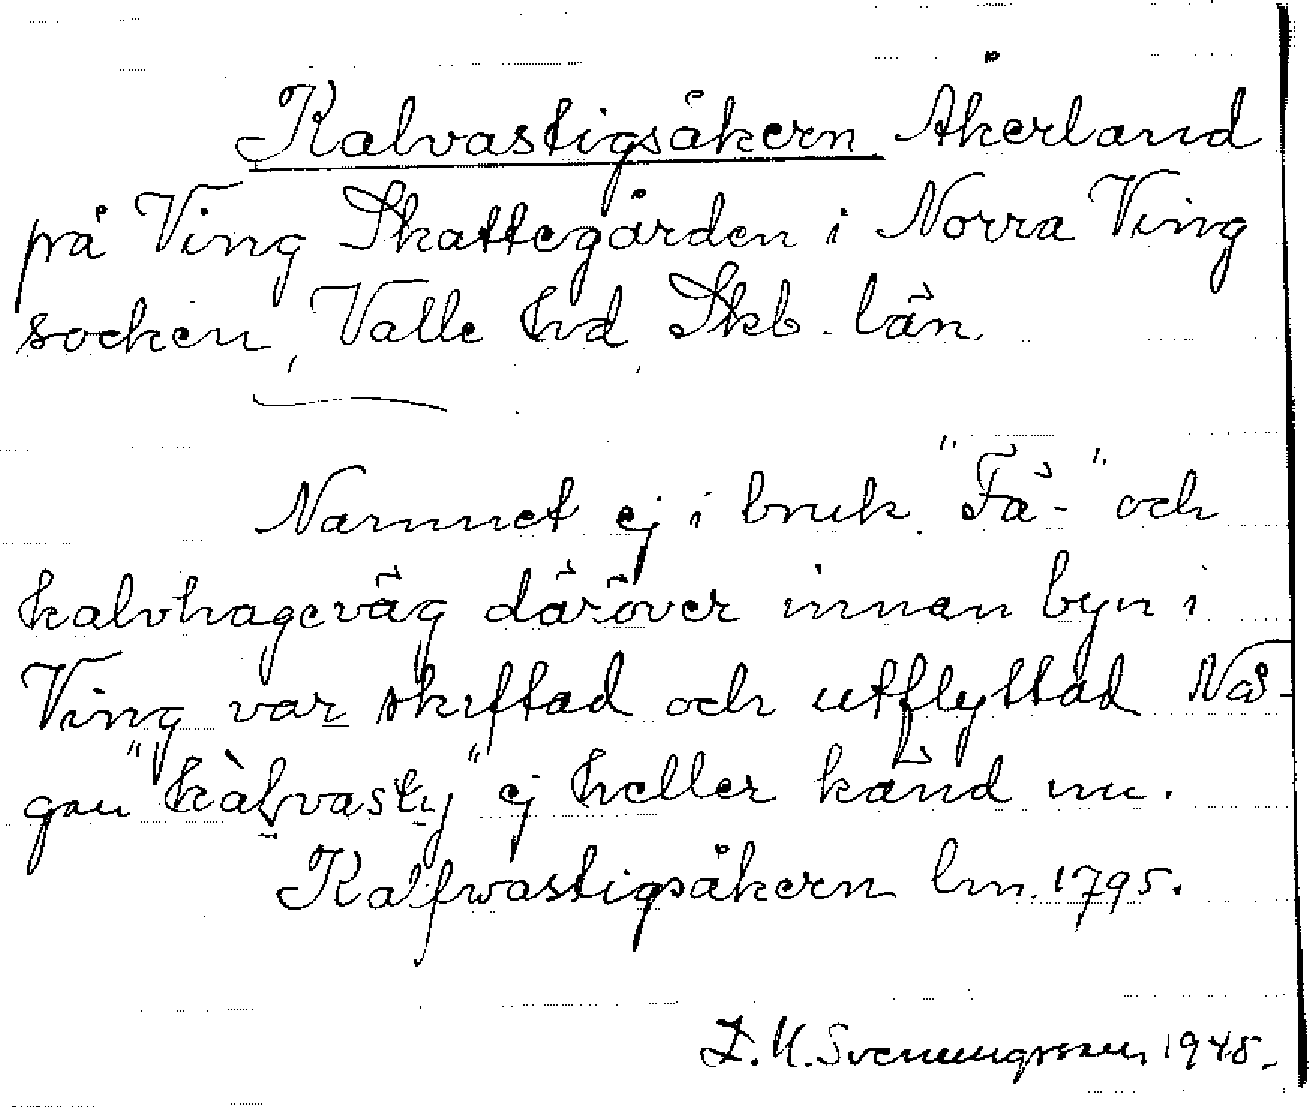 Kalvastigsåkern Åkerland
på Ving Skattegården i Norra Ving
socken, Valle hd, Skb. län.
Namnet ej i bruk. "Fä-" och
kalvhageväg däröver innan byn i
Ving var skiftad och utflyttad Nå-
gon "kàlvasty" ej heller känd nu.
Kalfwastigsåkern lm. 1795.
D. U. Svenningsson 1948.